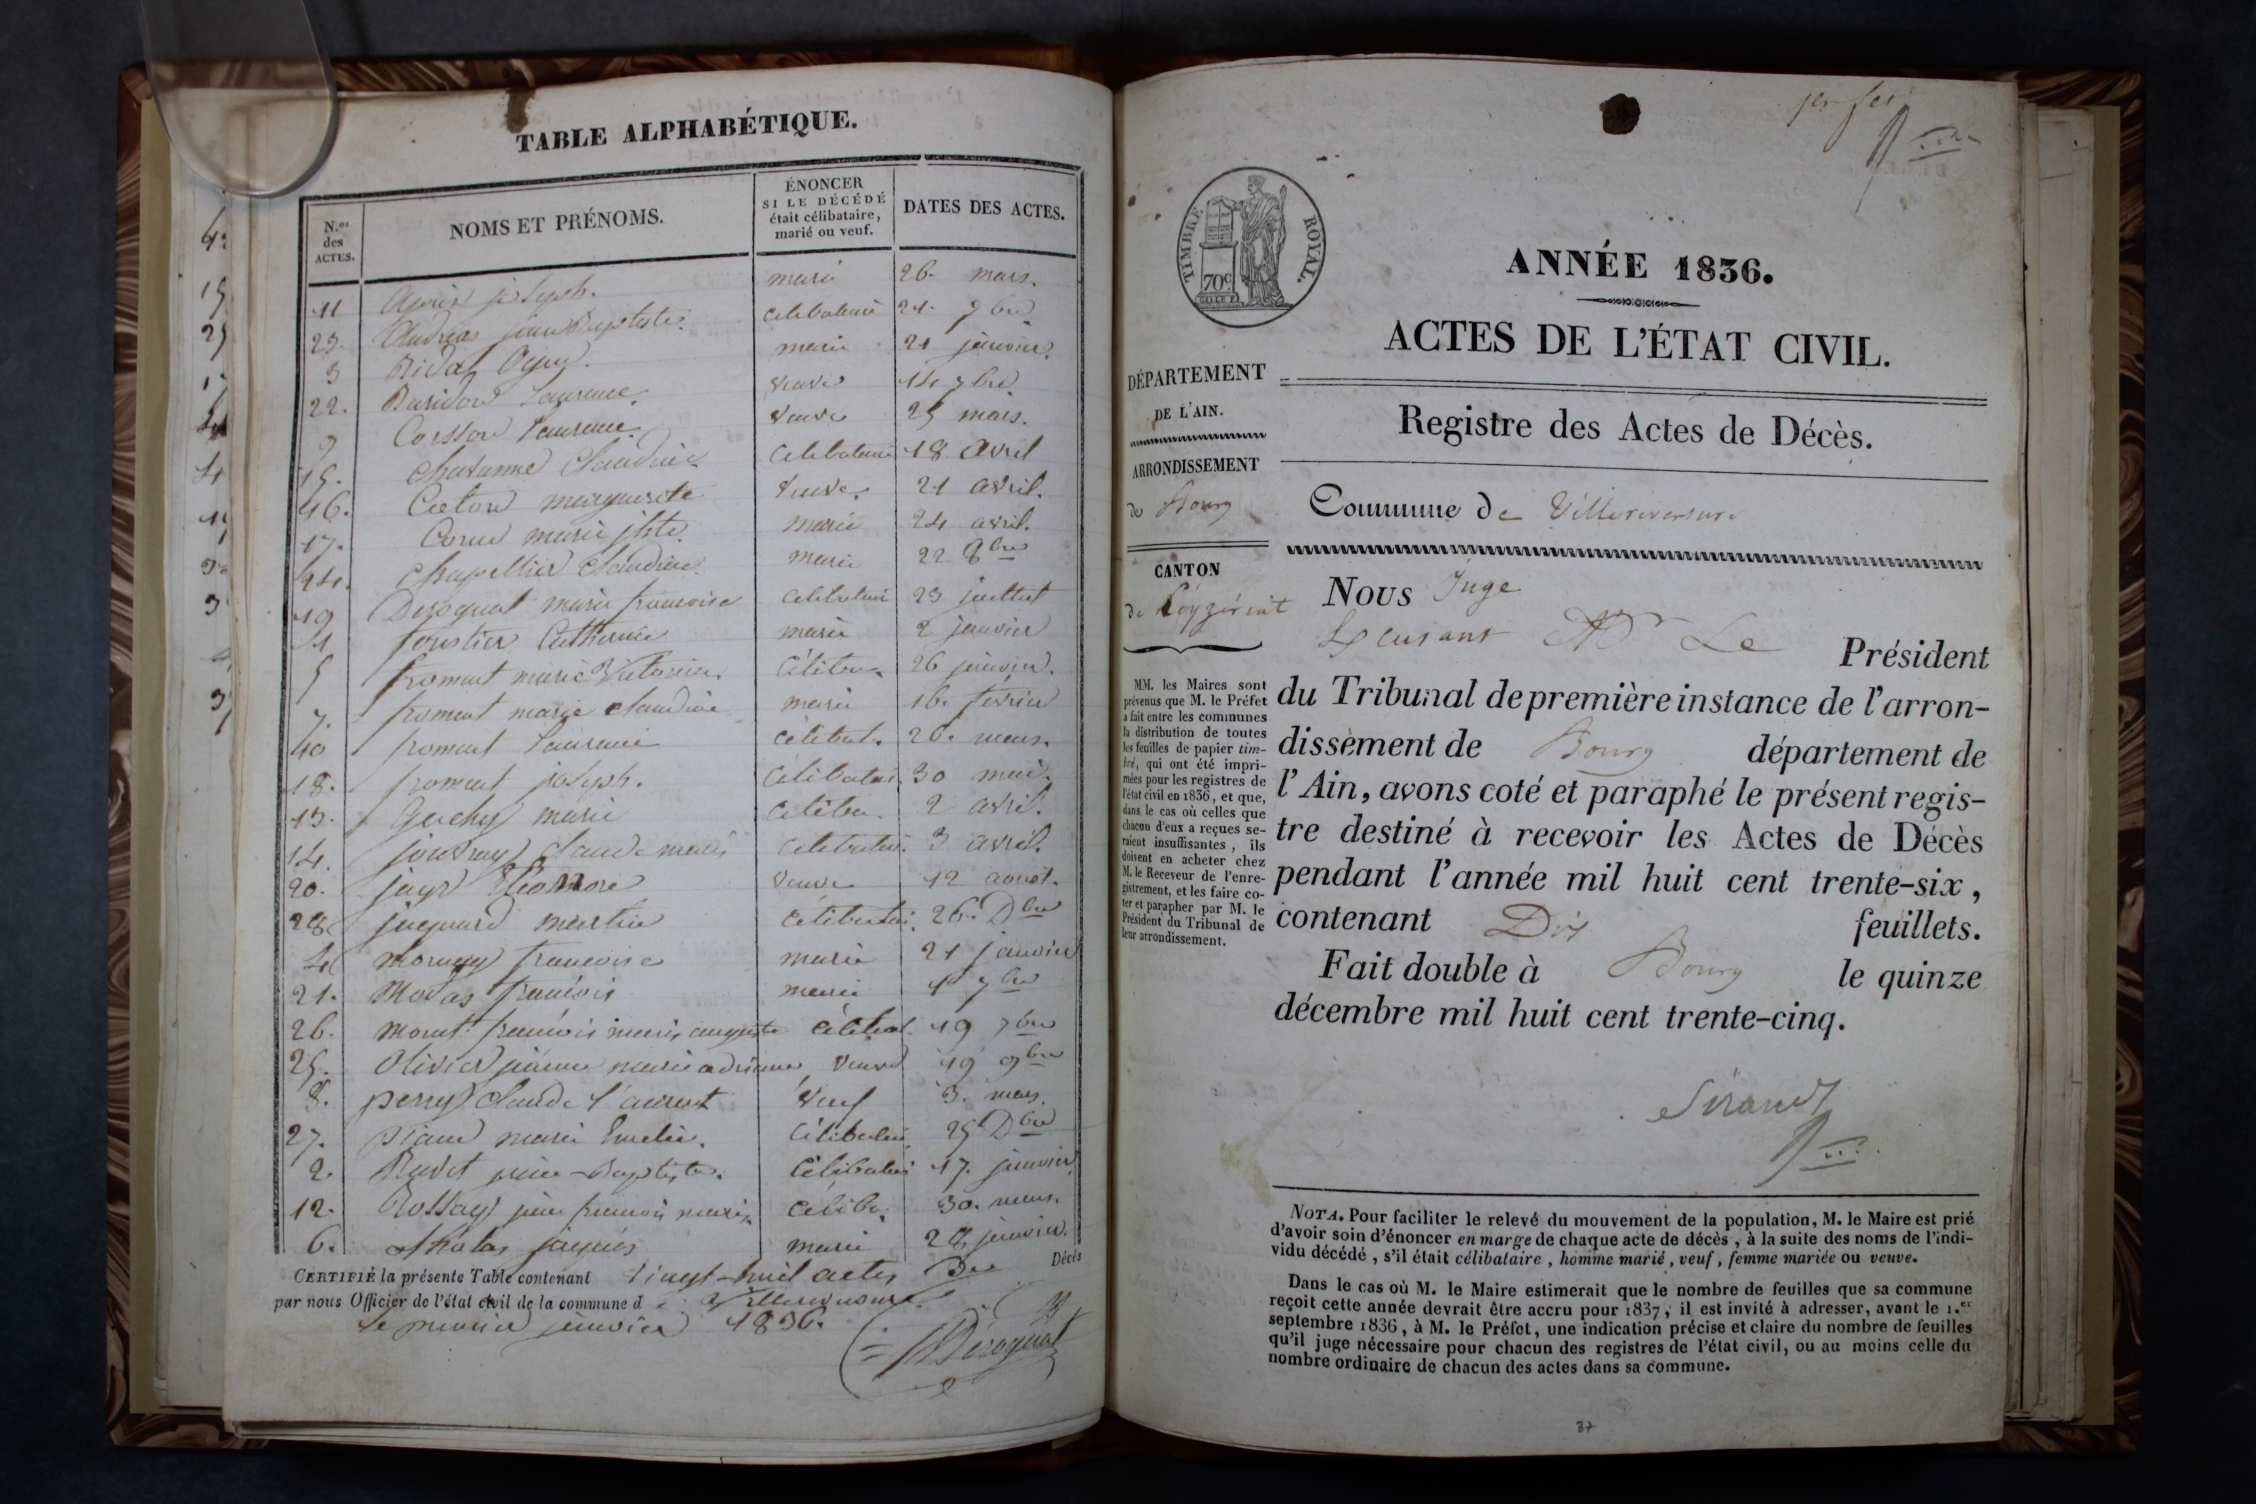 TABLE ALPHABÉTIQUE.
N.os des ACTES.
NOMS ET PRÉNOMS.
ÉNONCER SI LE DÉCÉDÉ était célibataire, marié ou veuf.
DATES DES ACTES.
11 joseph. marié 26. mars.
23. jean Baptiste. célibataire 21. 7bre
3 Bidal marié 21 janvier.
22. Laurence. veuve 14 7bre
9 Laurence. veuve 25 mars.
15. Claudine célibataire 18 avril
16. marguerite veuve. 21 avril.
17. Cornu marie marié 24 avril.
24. Chapellier Claudine. marié 22 8bre
19 Desoquat marie francoise célibataire 23 juillet
1 forestier Catherine marié 2 janvier
5 froment marie Victorine céliba. 26 janvier.
7. froment marie claudine marié 16. février
10 froment Laurence célibat. 26. mars.
18. froment joseph. célibatai. 30 mai.
13. Guchy marie céliba. 2 avril.
14. Claude marie célibatai. 3 avril.
20. jayr Eléonore veuve 12 aout.
28 jaquand célibatai. 26. Dbre
4 francoise marié 21 janvier
21. Modas francois marié 1er 7bre
26. monet francois marie auguste célibat. 19
25. Olivier marie adrienne veuve 19 9bre
8. perret Claude Laurent Veuf 3. mars.
27. piand marie Emelie. célibatai 25 Dbre
2. jean-Baptiste. célibatai 17. janvier.
12. jean francois marie céliba. 30. mars.
6. jaques marié 28 janvier.
CERTIFIÉ la présente Table contenant Vingt-huit actes De Décès
par nous Officier de l'état civil de la commune de Villereversure.
le premier janvier 1836.
Désoquat
ANNÉE 1836.
ACTES DE L'ÉTAT CIVIL.
TIMBRE ROYAL.
70c
DÉPARTEMENT
DE L'AIN.
ARRONDISSEMENT
de Bourg
CANTON
de Ceyzériat
MM. les Maires sont
prévenus que M. le Préfet
a fait entre les communes
la distribution de toutes
les feuilles de papier tim-
bré, qui ont été impri-
mées pour les registres de
l'état civil en 1836, et que,
dans le cas où celles que
chacun d'eux a reçues se-
raient insuffisantes, ils
doivent en acheter chez
M. le Receveur de l'enre-
gistrement, et les faire co-
ter et parapher par M. le
Président du Tribunal de
leur arrondissement.
Registre des Actes de Décès.
Commune de Villereversure
Nous Juge
Mr Le Président
du Tribunal de première instance de l'arron-
dissement de Bourg département de
l'Ain, avons coté et paraphé le présent regis-
tre destiné à recevoir les Actes de Décès
pendant l'année mil huit cent trente-six,
contenant Dix feuillets.
Fait double à Bourg le quinze
décembre mil huit cent trente-cinq.
NOTA. Pour faciliter le relevé du mouvement de la population, M. le Maire est prié
d'avoir soin d'énoncer en marge de chaque acte de décès, à la suite des noms de l'indi-
vidu décédé, s'il était célibataire, homme marié, veuf, femme mariée ou veuve.
Dans le cas où M. le Maire estimerait que le nombre de feuilles que sa commune
reçoit cette année devrait être accru pour 1837, il est invité à adresser, avant le 1.er
septembre 1836, à M. le Préfet, une indication précise et claire du nombre de feuilles
qu'il juge nécessaire pour chacun des registres de l'état civil, ou au moins celle du
nombre ordinaire de chacun des actes dans sa commune.
37